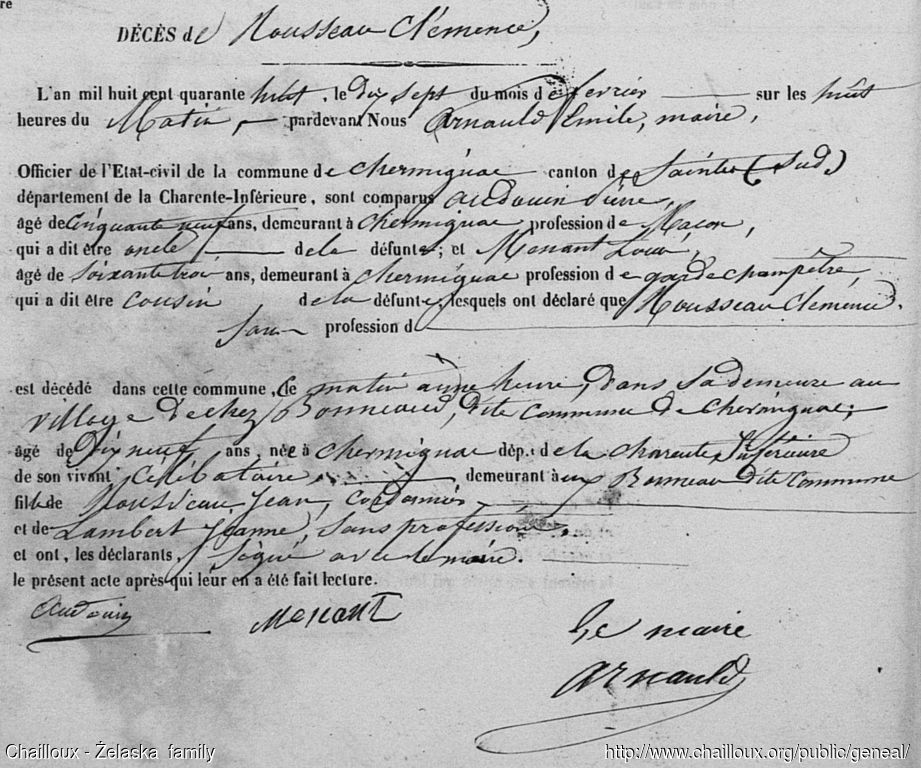 re
DÉCÈS de Rousseau Clémence,
L'an mil huit cent quarante huit, le dix sept du mois de février sur les huit
heures du Matin, pardevant Nous Arnauld Emile, maire,
Officier de l'Etat-civil de la commune de Chermignac canton de Saintes (Sud)
département de la Charente-Inférieure, sont comparus Audouin Pierre,
âgé de Cinquante neuf ans, demeurant à Chermignac profession de Maçon,
qui a dit être oncle de la défunte; et Menant Louis,
âgé de soixante trois ans, demeurant à Chermignac profession de garde champêtre
qui a dit être cousin de la défunte, lesquels ont déclaré que Rousseau Clémence.
Sans profession d
est décédé dans cette commune, le matin à une heure, dans sa demeure au
village de chez Bonneaud, dite commune de Chermignac;
âgé de Dix neuf ans, née à Chermignac dép.t de la Charente Inférieure
de son vivant Célibataire, demeurant à Bonneau dite Commune
fille de Rousseau Jean, Cordonnier
et de Lambert Jeanne, sans profession.
et ont, les déclarants, Signé avec le maire.
le présent acte après qui leur en a été fait lecture.
Audouin
Menant
Le maire
Arnauld
Chailloux - Żelaska family
http://www.chailloux.org/public/geneal/